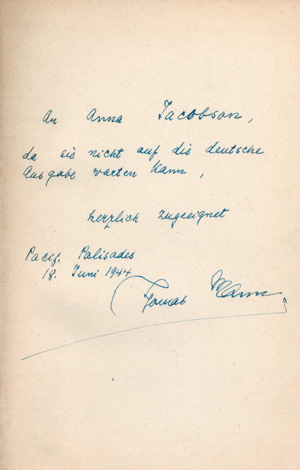 An Anna Jacobson,
da sie nicht auf die deutsche
Ausgabe warten kann,
herzlich zugeeignet
Pacif. Palisades
18. Juni 1944
Thomas Mann